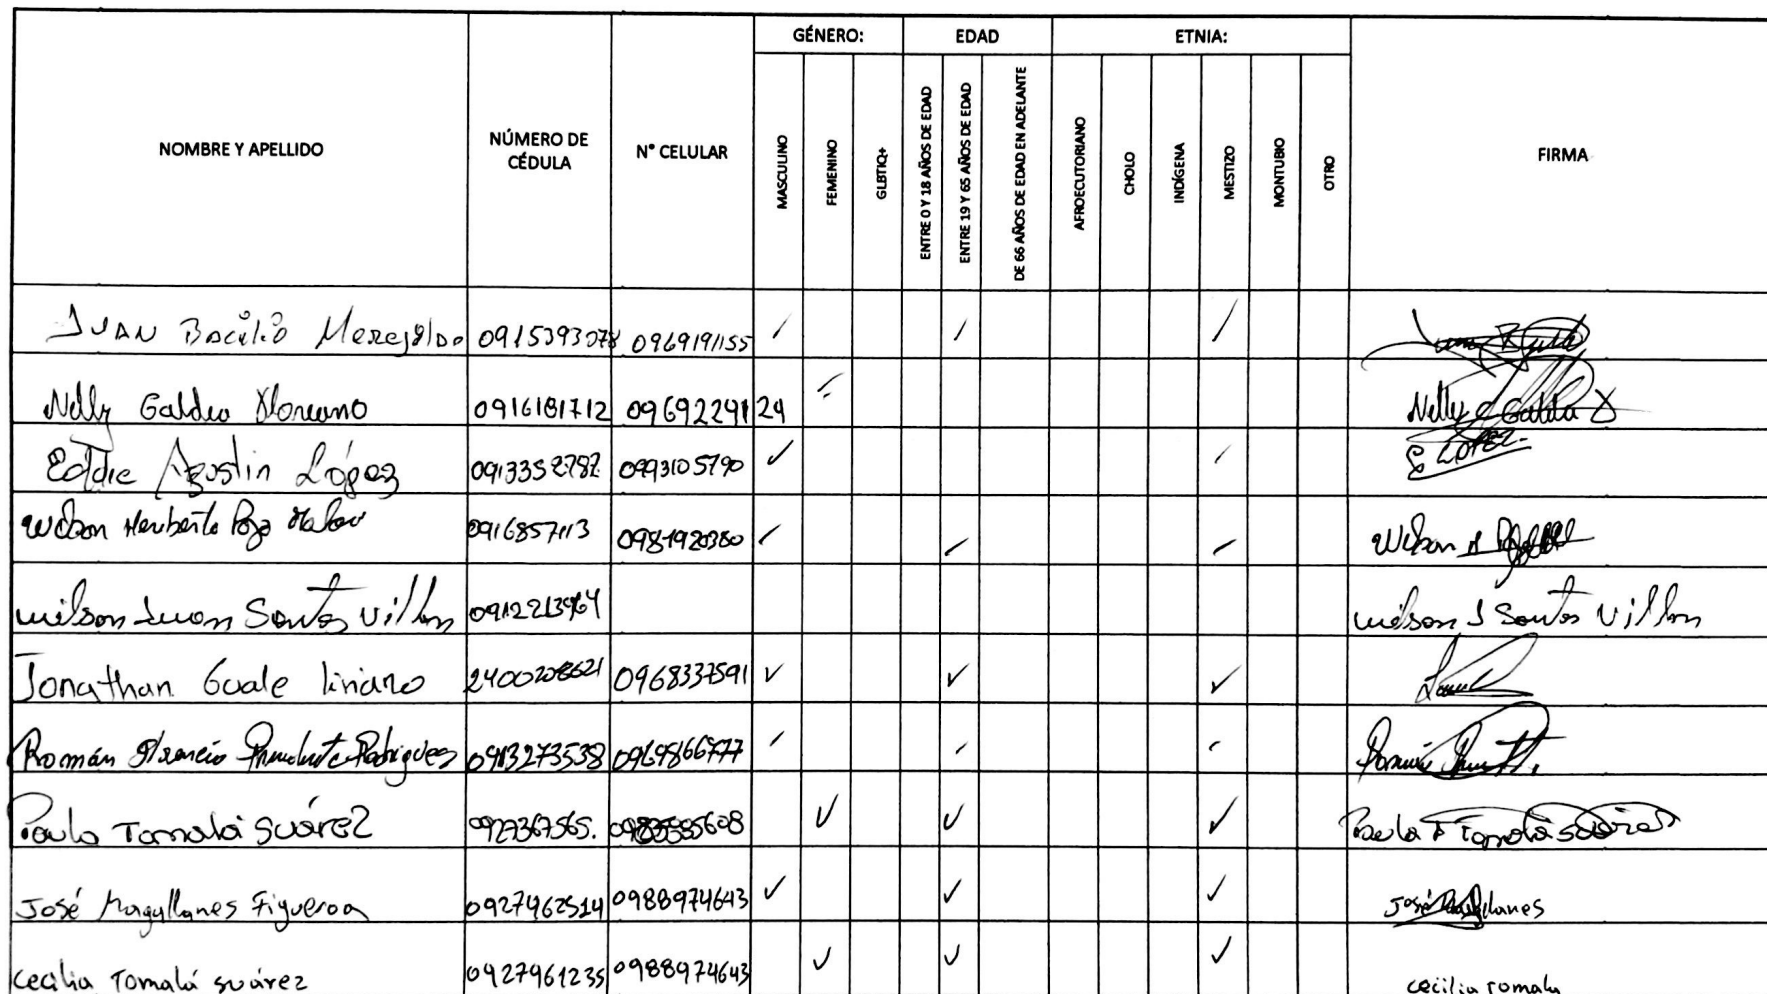 GÉNERO: EDAD ETNIA:
NOMBRE Y APELLIDO NÚMERO DE CÉDULA N° CELULAR MASCULINO FEMENINO GLBTIQ+ ENTRE 0 Y 18 AÑOS DE EDAD ENTRE 19 Y 65 AÑOS DE EDAD DE 66 AÑOS DE EDAD EN ADELANTE AFROECUTORIANO CHOLO INDÍGENA MESTIZO MONTUBIO OTRO FIRMA
JUAN Bacilio 0915393078 0969191155
Nelly Galdea 0916181712 0969224124 Nelly
Eddie Agustin López 0913352782 0993105790 E LOPEZ
Wilson Heriberto Pozo 0916857113 0981920380 Wilson
Wilson Juan Santos Villon 0912213964 Wilson J Santos Villon
Jonathan Guale liriano 2400208621 0968337591 ✓ ✓ ✓
Román Prudente Rodriguez 0913273538 Román
Paula Tomalá Suárez 0927367565. ✓ ✓ ✓ Paula Tomalá Suárez
José Magallanes Figueroa 0927462514 0988974643 ✓ ✓ ✓ José Magallanes
Cecilia Tomalá suárez 0927961235 0988974643 ✓ ✓ ✓ cecilia Tomala